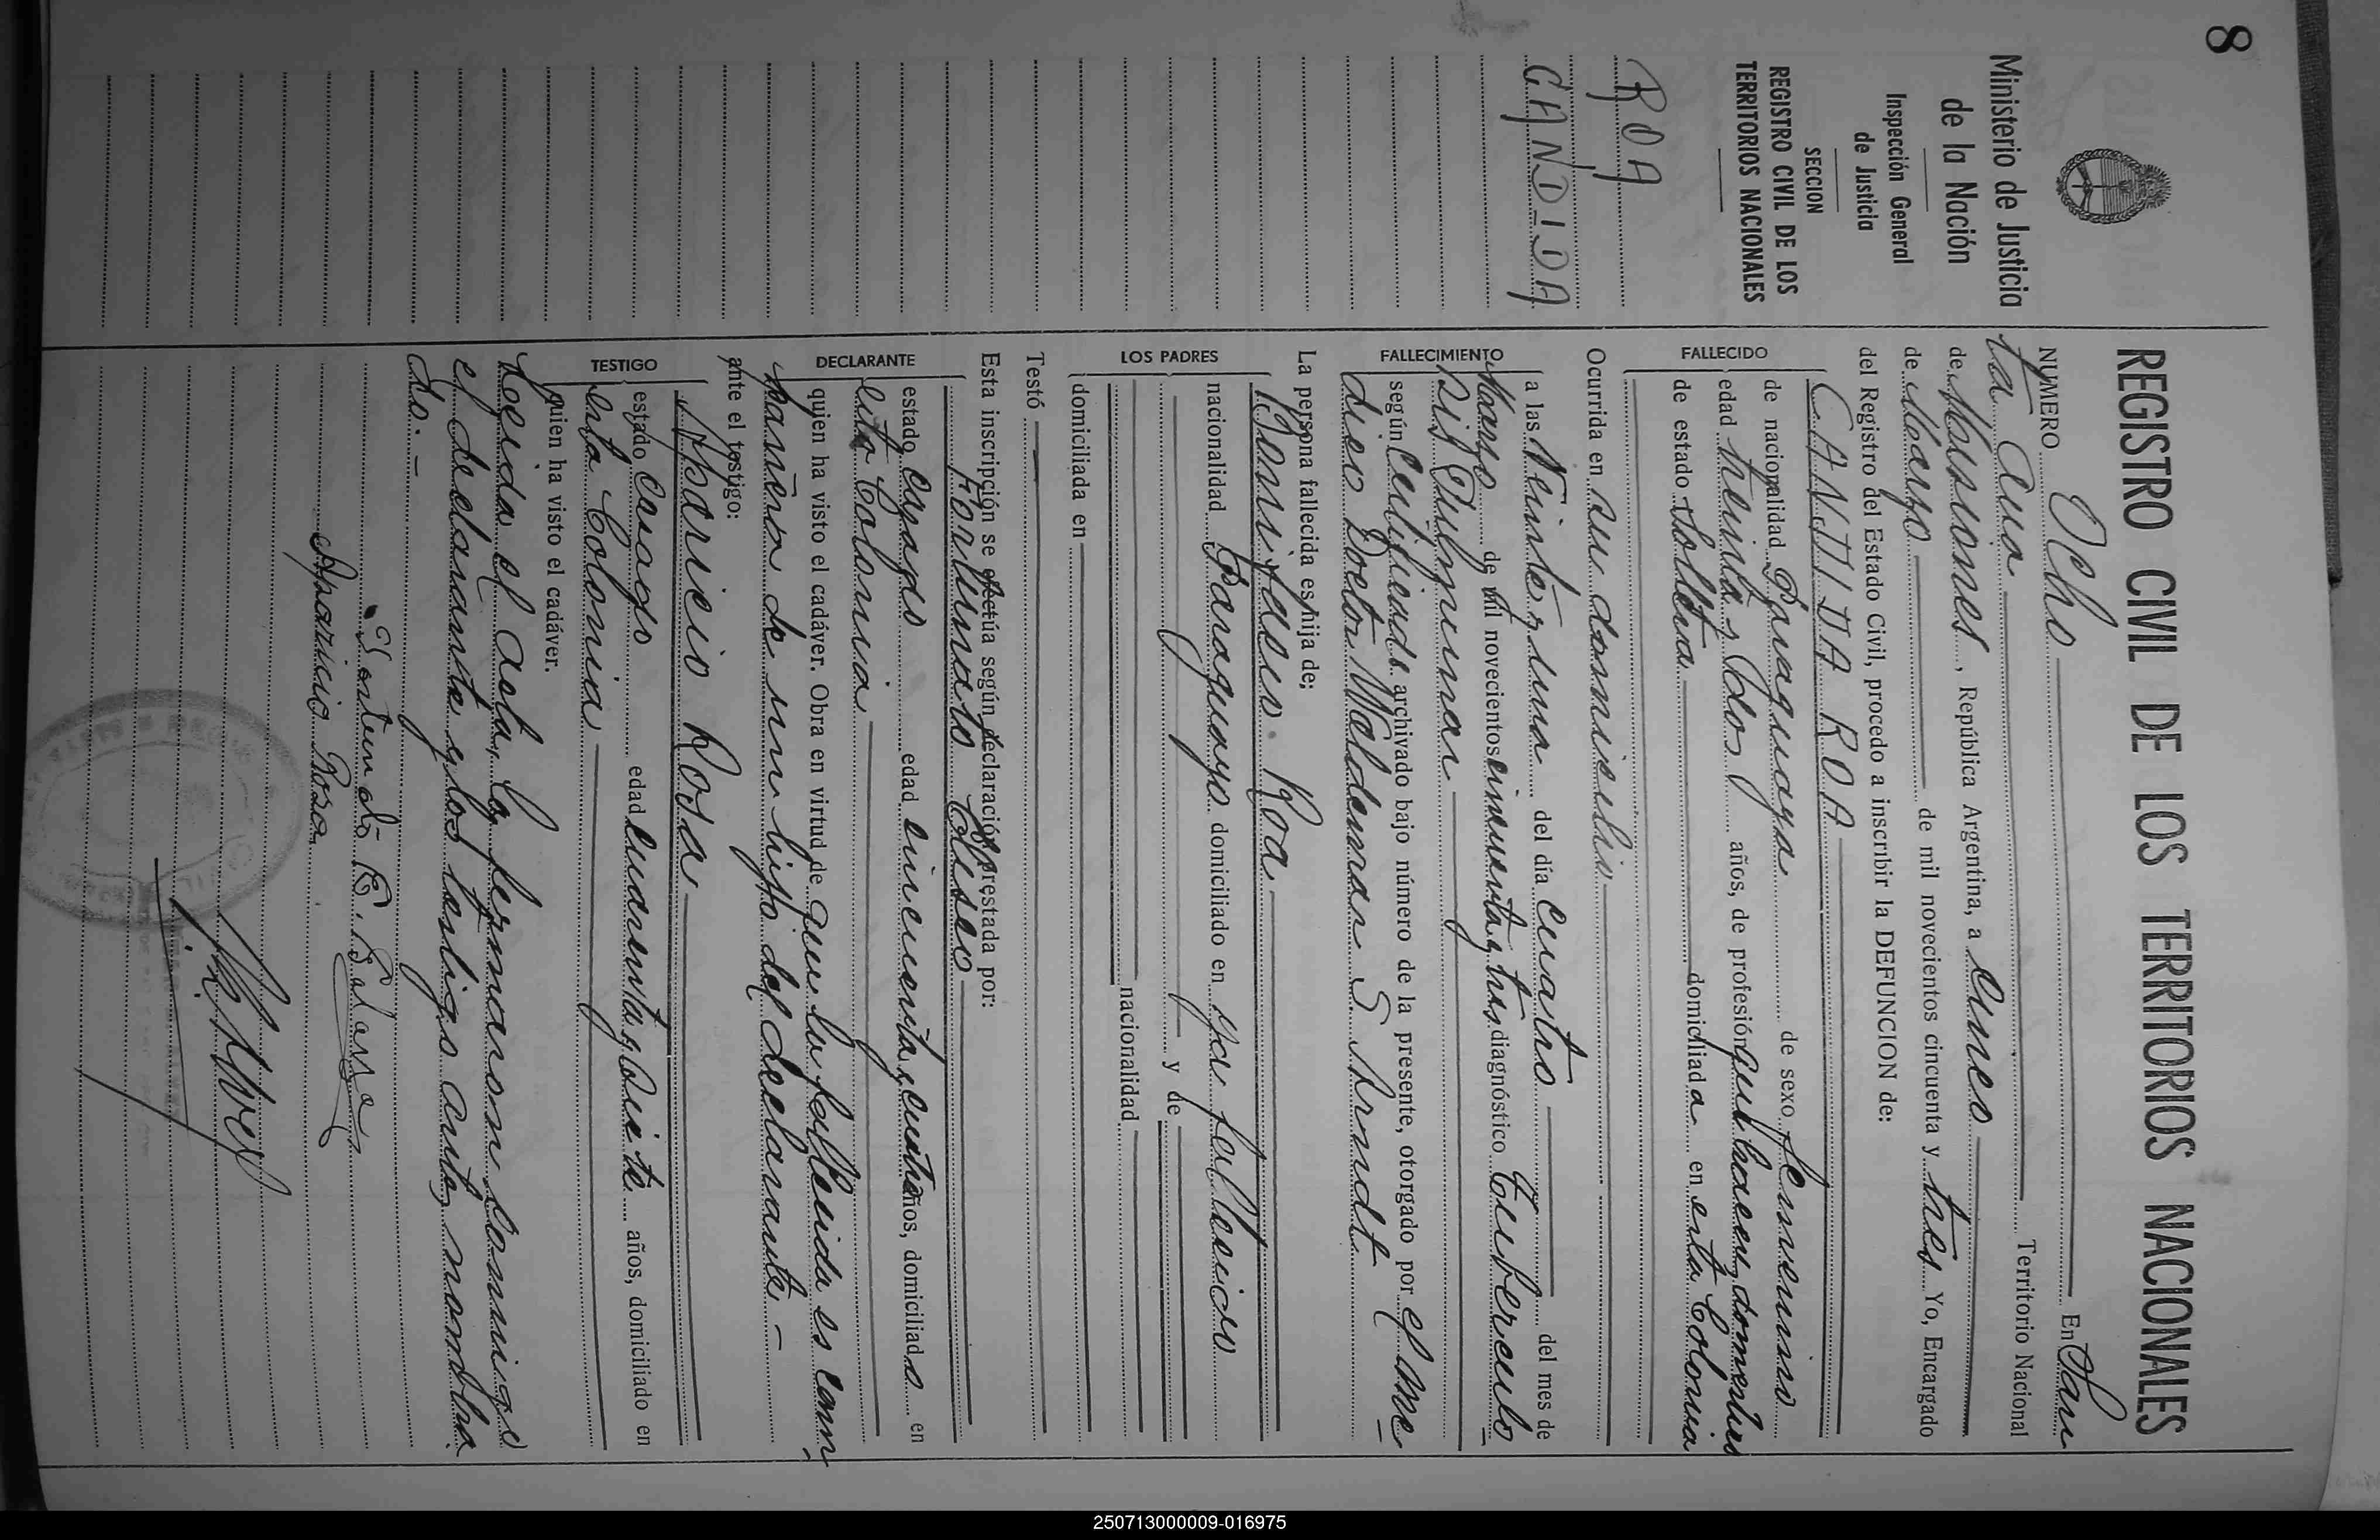 8
Ministerio de Justicia
de la Nación
Inspección General
de Justicia
SECCION
REGISTRO CIVIL DE LOS
TERRITORIOS NACIONALES
ROA
CANDIDA
REGISTRO CIVIL DE LOS TERRITORIOS NACIONALES
NUMERO Ocho En San
ta Ana Territorio Nacional
de Misiones, República Argentina, a cinco
de Marzo de mil novecientos cincuenta y tres Yo, Encargado
del Registro del Estado Civil, procedo a inscribir la DEFUNCION de:
FALLECIDO
CANDIDA ROA
de nacionalidad Paraguaya de sexo femenino
edad treinta y dos años, de profesión queh
de estado soltera domiciliada en esta Colonia
Ocurrida en su domicilio
FALLECIMIENTO
a las Veinte y una del día cuatro del mes de
Marzo de mil novecientos cincuenta y tres, diagnóstico Tuberculo
sis Pulmonar
según certificado archivado bajo número de la presente, otorgado por el me
dico Doctor Waldemar S. Arndt
La persona fallecida es hija de;
LOS PADRES
Bonifacio Roa
nacionalidad Paraguayo domiciliado en ya fallecido
y de
nacionalidad
domiciliada en
Testó
Esta inscripción se efectúa según declaración prestada por:
DECLARANTE
Fortunato
estado casado edad cincuenta y cuatro años, domiciliado en
esta Colonia
quien ha visto el cadáver. Obra en virtud de que la fallecida es com
pañera de un hijo del declarante -
ante el testigo:
TESTIGO
Aparicio Rosa
estado casado edad cuarenta y siete años, domiciliado en
esta Colonia
quien ha visto el cadáver.
Leida el acta, la firmaron conmigo
el declarante y los testigos antes nombra
do. -
Aparicio Rosa
250713000009-016975